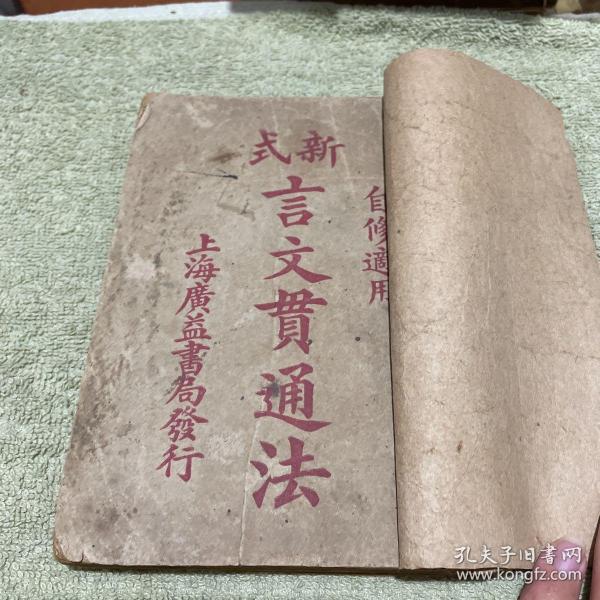 自修適用
新式
言文貫通法
上海廣益書局發行
孔夫子旧書网
www.kongfz.com